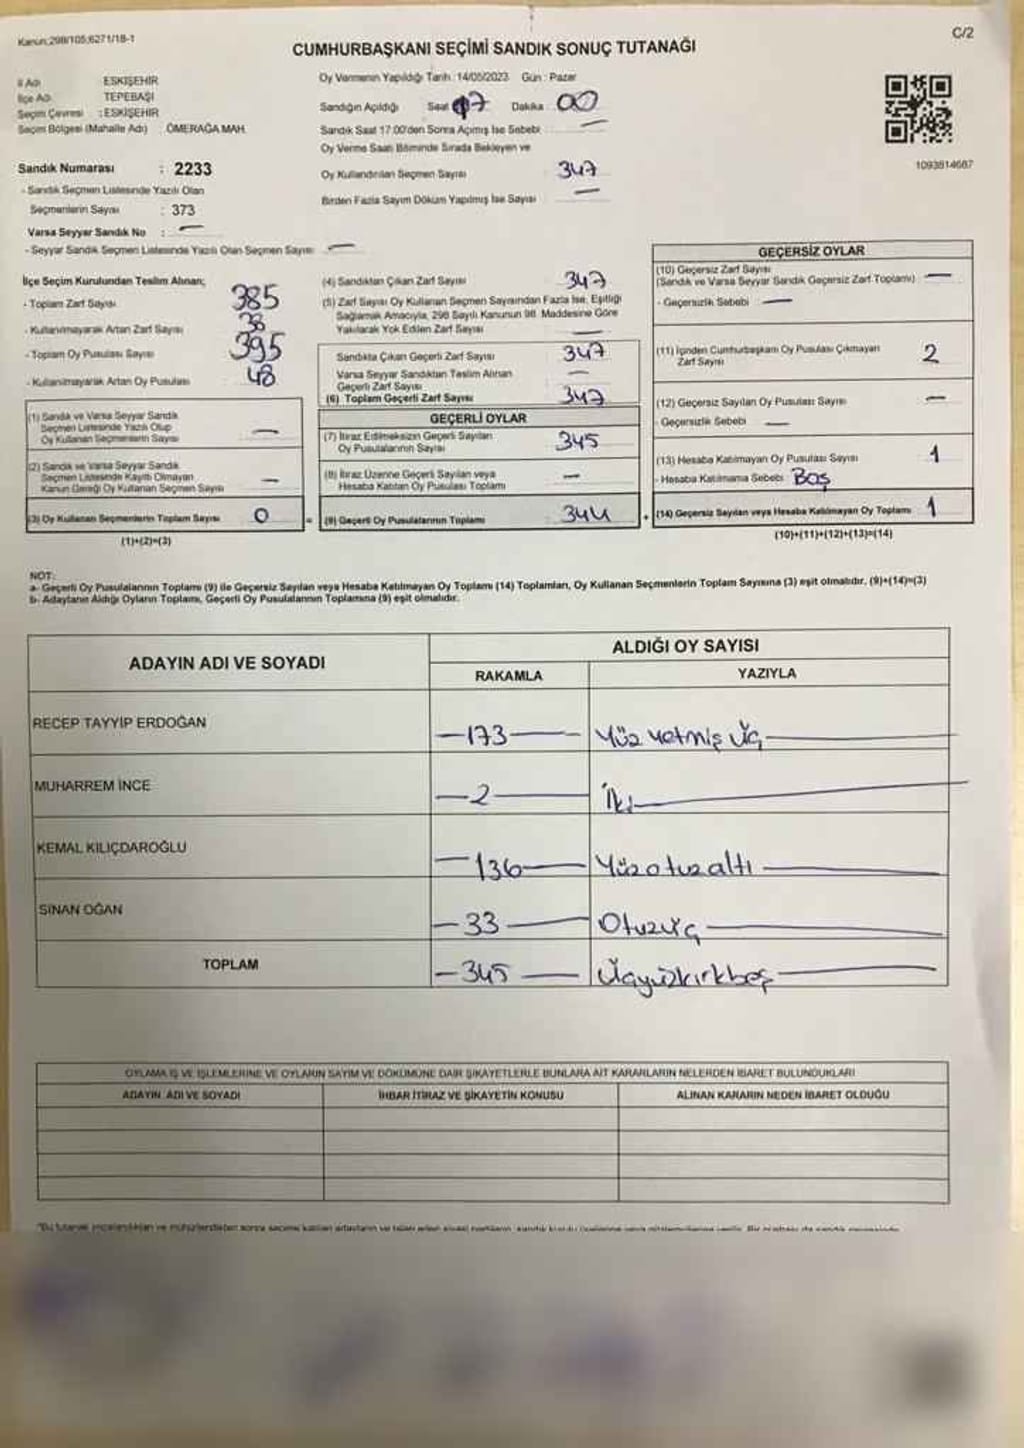 Kanun:298/105;6271/18-1
C/2
CUMHURBAŞKANI SEÇİMİ SANDIK SONUÇ TUTANAĞI
İl Adı ESKİŞEHİR
İlçe Adı TEPEBAŞI
Seçim Çevresi : ESKİŞEHİR
Seçim Bölgesi (Mahalle Adı) : ÖMERAĞA MAH.
Oy Vermenin Yapıldığı Tarih : 14/05/2023 Gün : Pazar
Sandığın Açıldığı Saat 17 Dakika 00
Sandık Saat 17:00'den Sonra Açılmış İse Sebebi —
Oy Verme Saati Bitiminde Sırada Bekleyen ve
Oy Kullandırılan Seçmen Sayısı 347
Birden Fazla Sayım Döküm Yapılmış İse Sayısı —
1093814687
Sandık Numarası : 2233
- Sandık Seçmen Listesinde Yazılı Olan
Seçmenlerin Sayısı : 373
Varsa Seyyar Sandık No : —
- Seyyar Sandık Seçmen Listesinde Yazılı Olan Seçmen Sayısı —
İlçe Seçim Kurulundan Teslim Alınan;
- Toplam Zarf Sayısı 385
- Kullanılmayarak Artan Zarf Sayısı 38
- Toplam Oy Pusulası Sayısı 395
- Kullanılmayarak Artan Oy Pusulası 48
(1) Sandık ve Varsa Seyyar Sandık
Seçmen Listesinde Yazılı Olup
Oy Kullanan Seçmenlerin Sayısı —
(2) Sandık ve Varsa Seyyar Sandık
Seçmen Listesinde Kayıtlı Olmayan
Kanun Gereği Oy Kullanan Seçmen Sayısı —
(3) Oy Kullanan Seçmenlerin Toplam Sayısı 0
(1)+(2)=(3)
(4) Sandıktan Çıkan Zarf Sayısı 347
(5) Zarf Sayısı Oy Kullanan Seçmen Sayısından Fazla İse, Eşitliği
Sağlamak Amacıyla, 298 Sayılı Kanunun 98. Maddesine Göre
Yakılarak Yok Edilen Zarf Sayısı —
Sandıkta Çıkan Geçerli Zarf Sayısı 347
Varsa Seyyar Sandıktan Teslim Alınan
Geçerli Zarf Sayısı —
(6) Toplam Geçerli Zarf Sayısı 347
GEÇERLİ OYLAR
(7) İtiraz Edilmeksizin Geçerli Sayılan
Oy Pusulalarının Sayısı 345
(8) İtiraz Üzerine Geçerli Sayılan veya
Hesaba Katılan Oy Pusulası Toplamı —
= (9) Geçerli Oy Pusulalarının Toplamı 344
GEÇERSİZ OYLAR
(10) Geçersiz Zarf Sayısı
(Sandık ve Varsa Seyyar Sandık Geçersiz Zarf Toplamı) —
- Geçersizlik Sebebi —
(11) İçinden Cumhurbaşkanı Oy Pusulası Çıkmayan
Zarf Sayısı 2
(12) Geçersiz Sayılan Oy Pusulası Sayısı —
- Geçersizlik Sebebi —
(13) Hesaba Katılmayan Oy Pusulası Sayısı 1
- Hesaba Katılmama Sebebi Boş
+ (14) Geçersiz Sayılan veya Hesaba Katılmayan Oy Toplamı 1
(10)+(11)+(12)+(13)=(14)
NOT:
a- Geçerli Oy Pusulalarının Toplamı (9) ile Geçersiz Sayılan veya Hesaba Katılmayan Oy Toplamı (14) Toplamları, Oy Kullanan Seçmenlerin Toplam Sayısına (3) eşit olmalıdır. (9)+(14)=(3)
b- Adayların Aldığı Oyların Toplamı, Geçerli Oy Pusulalarının Toplamına (9) eşit olmalıdır.
ADAYIN ADI VE SOYADI
ALDIĞI OY SAYISI
RAKAMLA YAZIYLA
RECEP TAYYİP ERDOĞAN —173— Yüz yetmiş üç—
MUHARREM İNCE —2— İki—
KEMAL KILIÇDAROĞLU —136— Yüzotuzaltı—
SİNAN OĞAN —33— Otuzüç—
TOPLAM —345— Üçyüzkırkbeş—
OYLAMA İŞ VE İŞLEMLERİNE VE OYLARIN SAYIM VE DÖKÜMÜNE DAİR ŞİKAYETLERLE BUNLARA AİT KARARLARIN NELERDEN İBARET BULUNDUKLARI
ADAYIN ADI VE SOYADI İHBAR İTİRAZ VE ŞİKAYETİN KONUSU ALINAN KARARIN NEDEN İBARET OLDUĞU